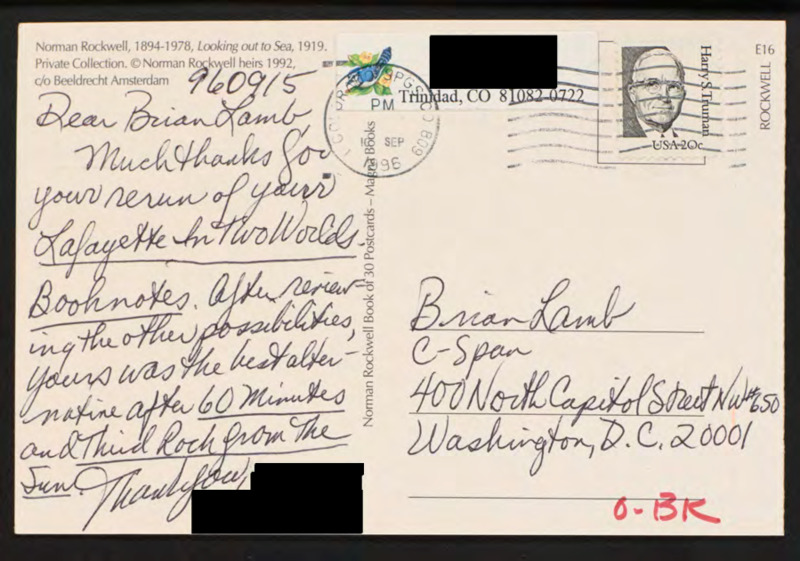 Norman Rockwell, 1894-1978, Looking out to Sea, 1919.
Private Collection. © Norman Rockwell heirs 1992,
c/o Beeldrecht Amsterdam
960915
Dear Brian Lamb,
Much thanks for
your rerun of your
Lafayette In Two Worlds
Booknotes. After review-
ing the other possibilities,
yours was the best alter-
native after 60 Minutes
and Third Rock from The
Sun. Thank you,
Norman Rockwell Book of 30 Postcards – Magna Books
Trinidad, CO 81082-0722
COLORADO SPGS CO 809
PM
SEP
1996
Harry S. Truman
USA 20c
E16
ROCKWELL
Brian Lamb
C-Span
400 North Capitol Street NW #650
Washington, D.C. 20001
0-BK